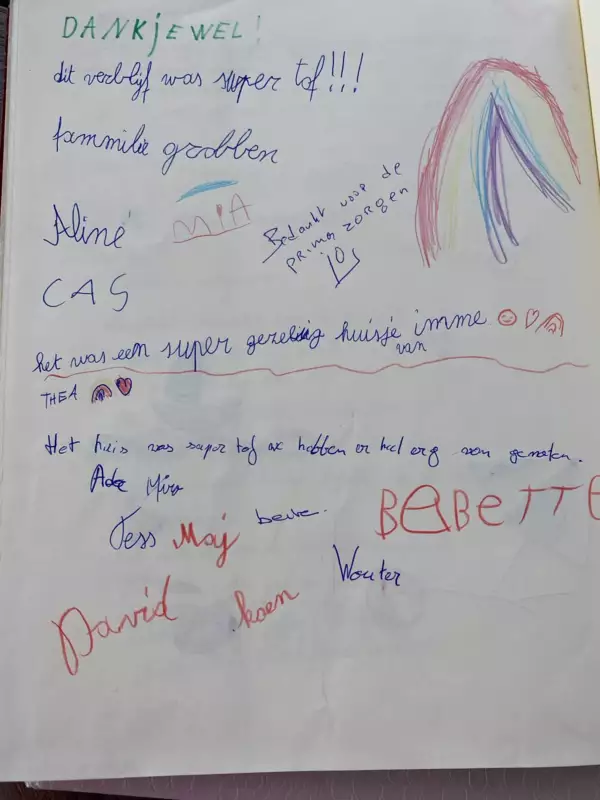 DANKJEWEL!
dit verblijf was super tof!!!
fammilie grobben
Aline
MIA
Bedankt voor de
prima zorgen
CAS
het was een super gezellig huisje imme
van
THEA
Het huis was super tof we hebben er heel erg van genoten.
Ade Miro
Tess Maj
BaBeTTE
Wouter
David koen